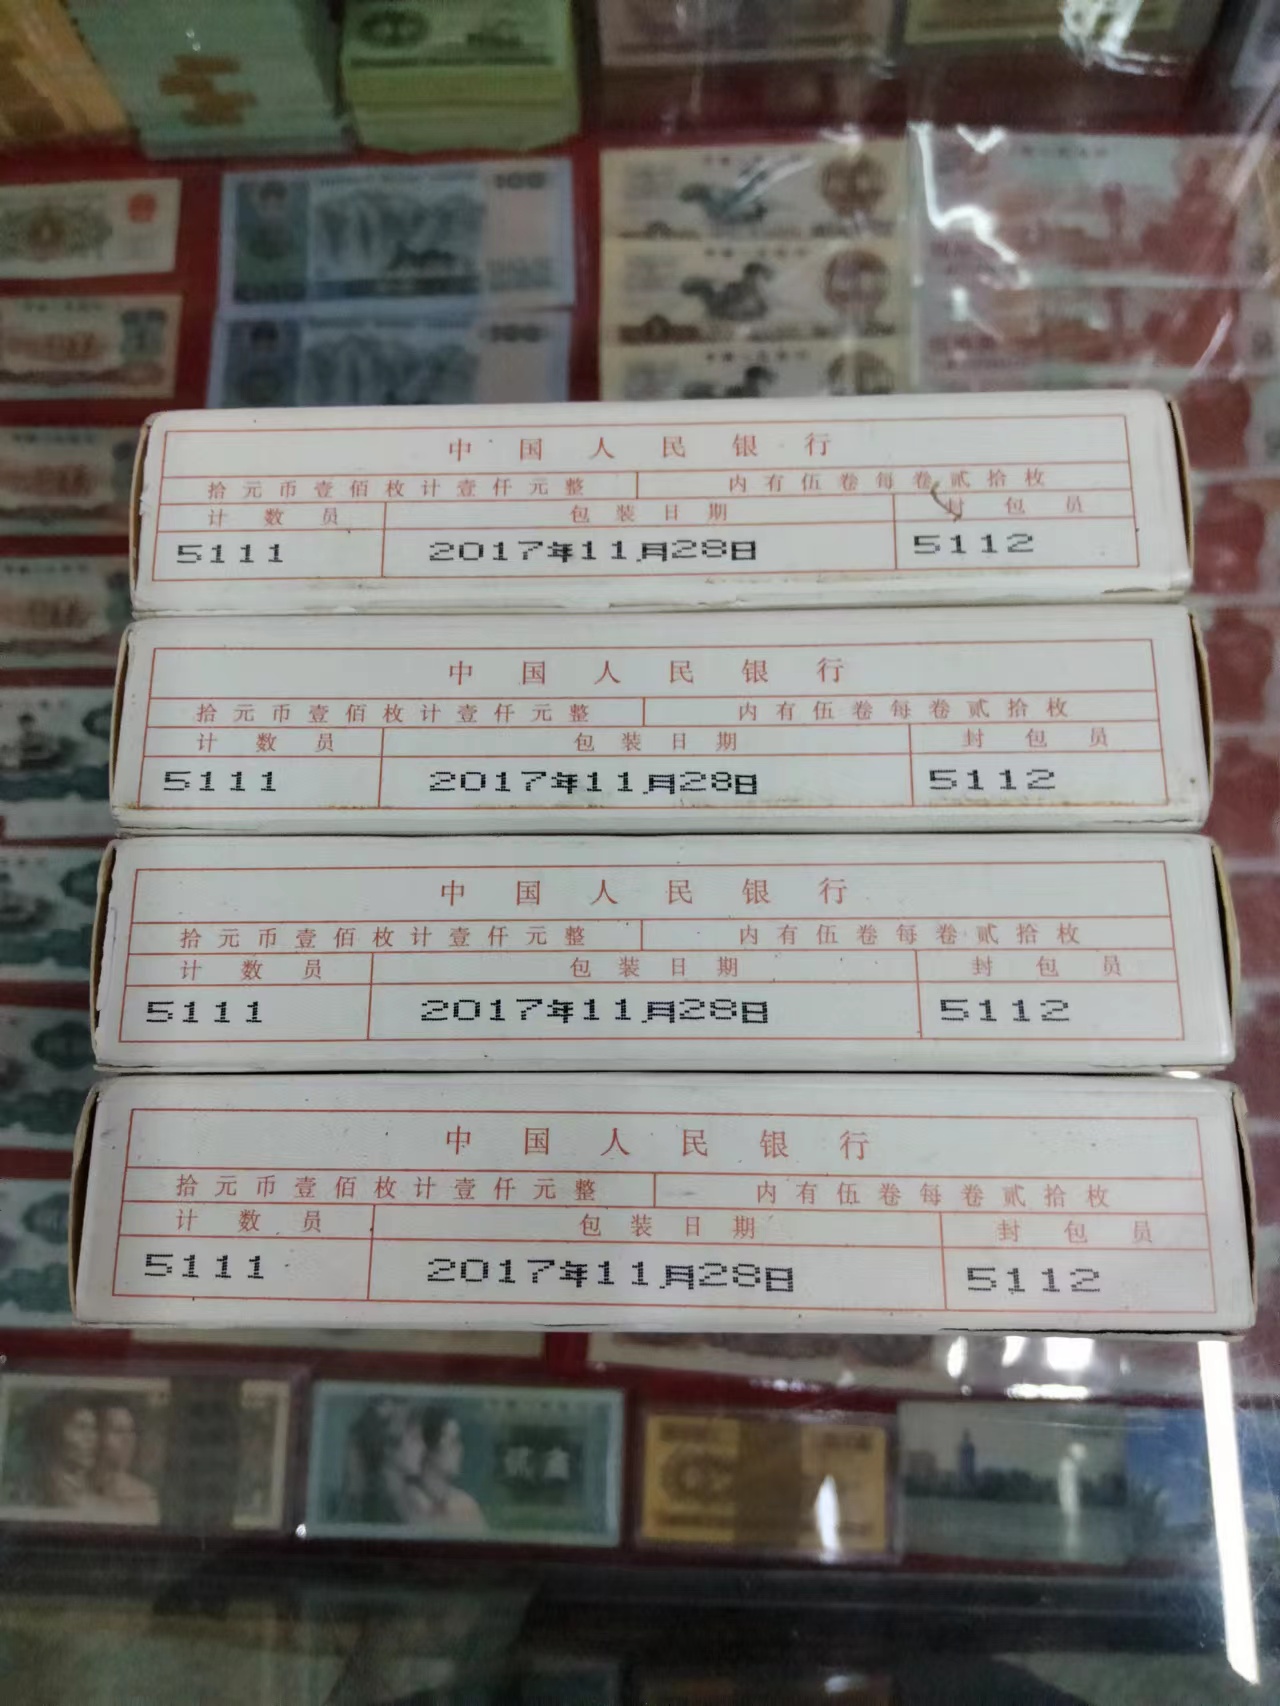 中国人民银行
拾元币壹佰枚计壹仟元整 内有伍卷每卷贰拾枚
计数员 包装日期 封包员
5111 2017年11月28日 5112
中国人民银行
拾元币壹佰枚计壹仟元整 内有伍卷每卷贰拾枚
计数员 包装日期 封包员
5111 2017年11月28日 5112
中国人民银行
拾元币壹佰枚计壹仟元整 内有伍卷每卷贰拾枚
计数员 包装日期 封包员
5111 2017年11月28日 5112
中国人民银行
拾元币壹佰枚计壹仟元整 内有伍卷每卷贰拾枚
计数员 包装日期 封包员
5111 2017年11月28日 5112
100
100
贰角